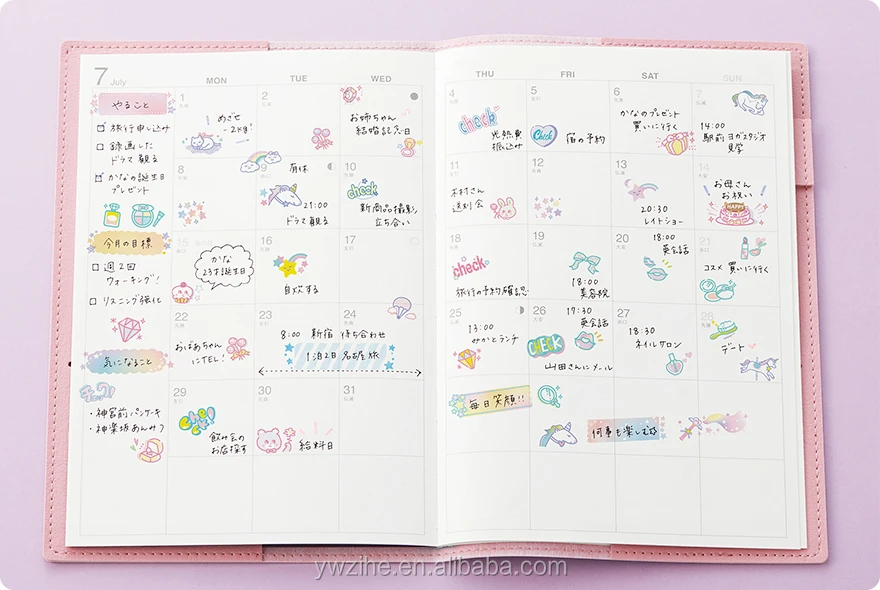 7 July
MON
TUE
WED
THU
FRI
SAT
SUN
やること
旅行申し込み
録画した
ドラマ観る
かなの誕生日
プレゼント
今月の目標
週2回
ウォーキング!
リスニング強化
気になること
・神宮前パンケーキ
・神楽坂あんみつ
1
めざせ
-2kg!
2
お姉ちゃん
結婚記念日
4
check
光熱費
振込み
5
Check
宿の予約
6
かなのプレゼント
買いに行く
7
14:00
駅前ヨガスタジオ
見学
8
9
有休
21:00
ドラマ観る
10
check
新商品撮影
立ち合い
11
木村さん
送別会
12
13
20:30
レイトショー
14
お母さん
お祝い
HAPPY
15
かな
23才誕生日
16
自炊する
17
18
check
旅行の予約確認
19
18:00
美容院
20
18:00
英会話
21
コスメ買いに行く
22
おばあちゃん
にTEL!
23
8:00 新宿 待ち合わせ
24
1泊2日 名古屋旅
25
13:00
みかとランチ
26
19:30
英会話
CHECK
山田さんにメール
27
18:30
ネイルサロン
28
デート
29
飲み会の
お店探す
30
給料日
31
毎日笑顔!!
何事も楽しむ
ywzihe.en.alibaba.com